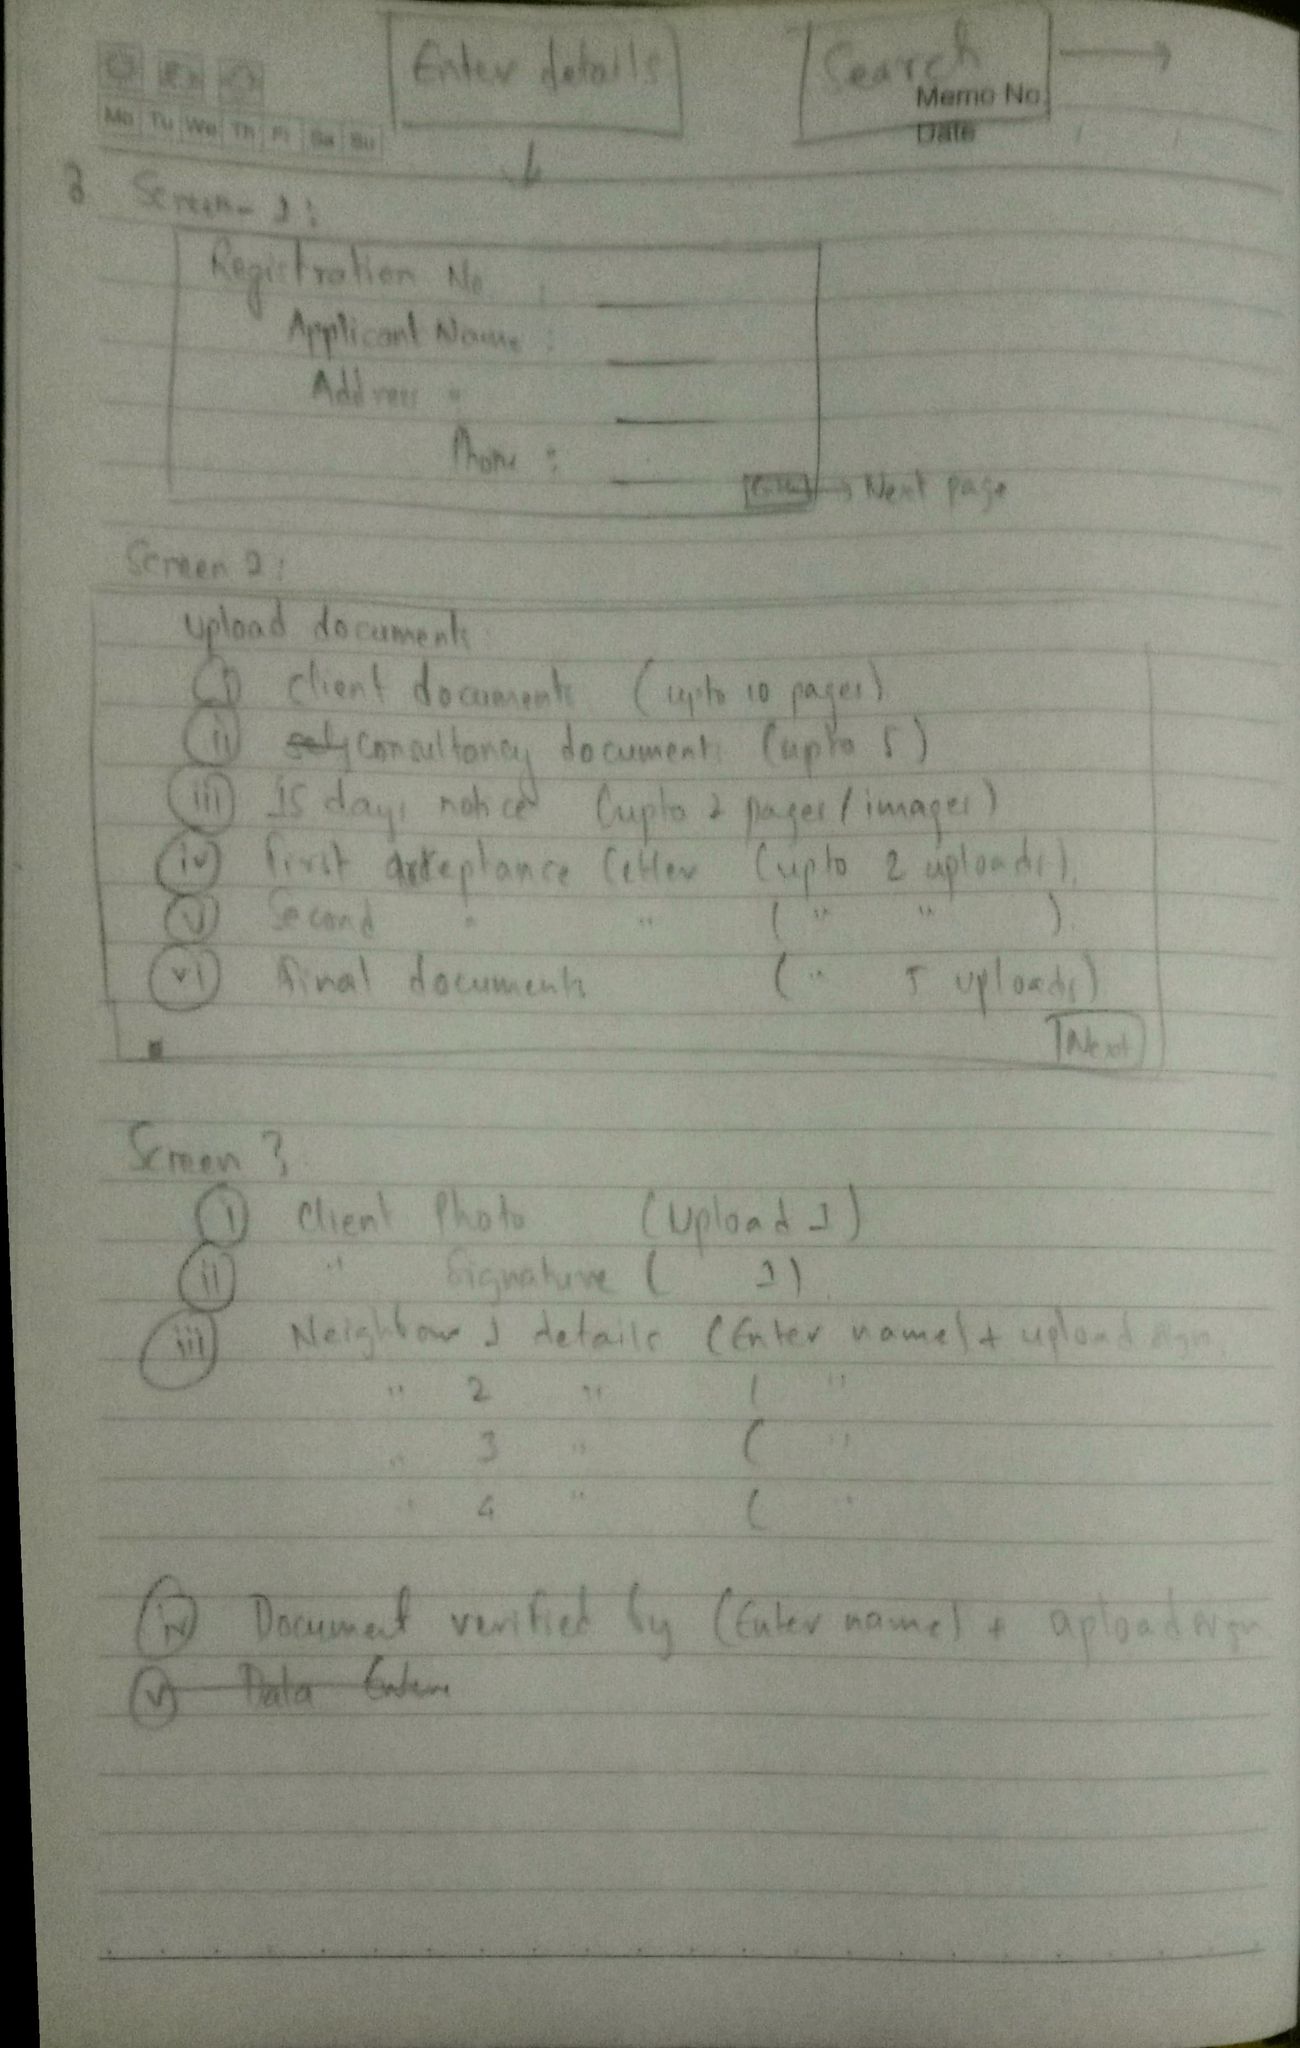 Enter details
Search
Memo No.
Date
Mo Tu We Th Fr Sa Su
Screen 1:
Registration No :
Applicant Name :
Address "
Phone :
Next page
Screen 2:
Upload documents
(i) Client documents (upto 10 pages)
(ii) consultancy documents (upto 5)
(iii) 15 days notice (upto 2 pages/images)
(iv) First acceptance letter (upto 2 uploads)
(v) Second " " ( " " )
(vi) Final documents ( " 5 uploads)
Next
Screen 3
(i) Client Photo (Upload 1)
(ii) " Signature ( 1)
(iii) Neighbour 1 details (Enter name) + upload sign
" 2 " ( "
" 3 " ( "
" 4 " ( "
(iv) Document verified by (Enter name) + upload sign
(v) Data